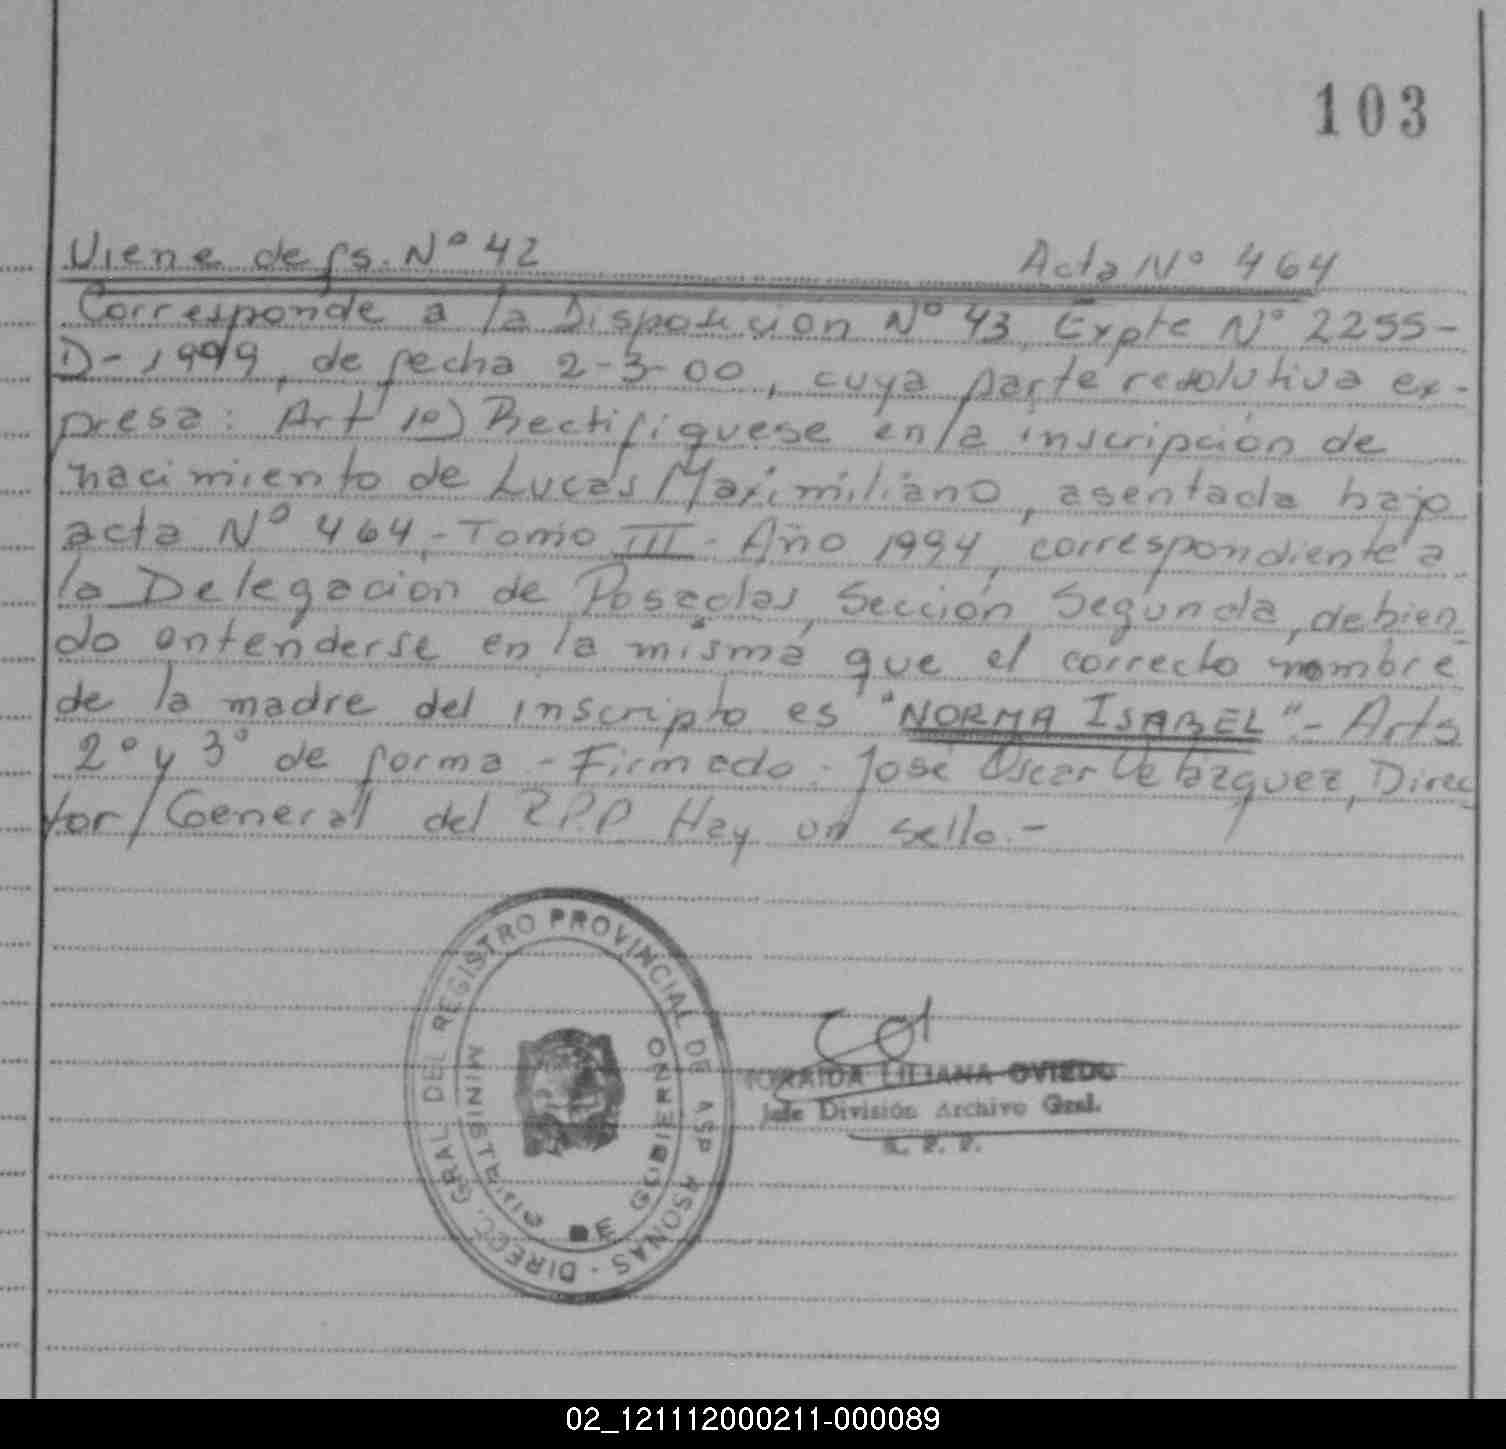 103
Viene de fs. Nº 42 Acta Nº 464
Corresponde a la Disposicion Nº 43, Expte Nº 2255-
D-1999, de fecha 2-3-00, cuya parte resolutiva ex-
presa: Art 1º) Rectifiquese en la inscripción de
nacimiento de Lucas Maximiliano, asentada bajo
acta Nº 464,- Tomo III - Año 1994, correspondiente a
la Delegacion de Posadas, Sección Segunda, debien-
do entenderse en la misma que el correcto nombre
de la madre del inscripto es "NORMA ISABEL".- Arts
2º y 3º de forma - Firmado - José Oscar Velazquez, Direc
tor/General del R.P.P Hay un sello.-
DIRECC. GRAL DEL REGISTRO PROVINCIAL DE
MINIST
DE GOBIERNO
LILIANA OVIEDO
Jefe División Archivo Gral.
02_121112000211-000089